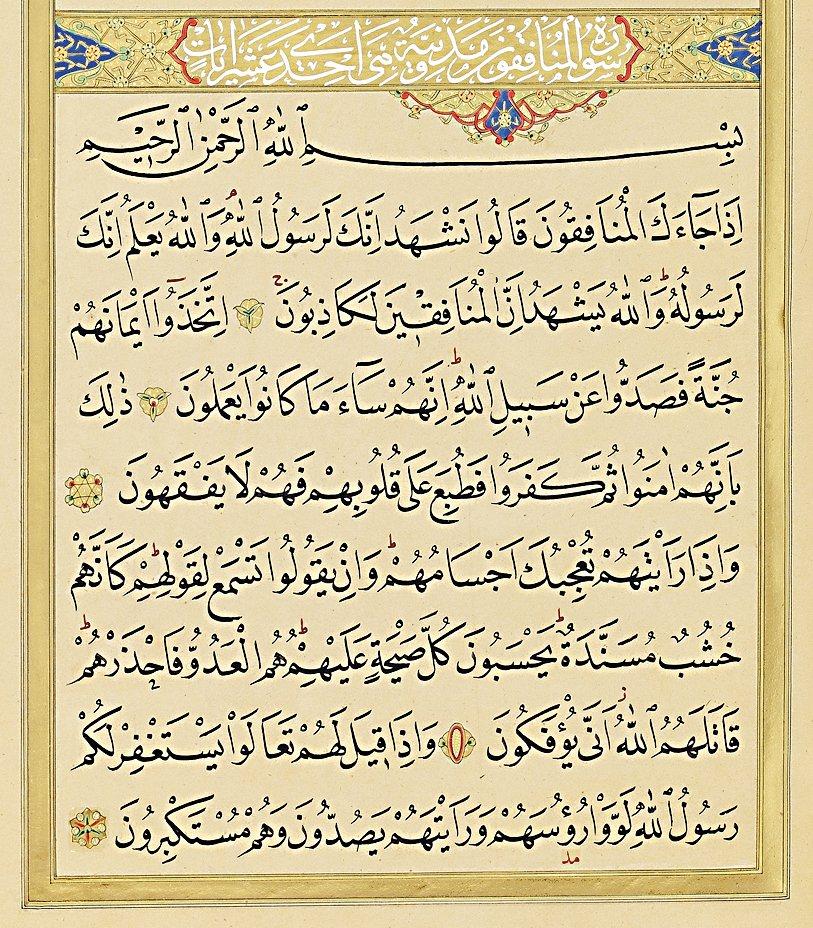 سورة المنافقون مدنية وهي احدى عشر ايات
بِسْمِ اللّٰهِ الرَّحْمٰنِ الرَّحٖيمِ
اِذَا جَٓاءَكَ الْمُنَافِقُونَ قَالُوا نَشْهَدُ اِنَّكَ لَرَسُولُ اللّٰهِۢ وَاللّٰهُ يَعْلَمُ اِنَّكَ
لَرَسُولُهُۜ وَاللّٰهُ يَشْهَدُ اِنَّ الْمُنَافِقٖينَ لَكَاذِبُونَۚ اِتَّخَذُٓوا اَيْمَانَهُمْ
جُنَّةً فَصَدُّوا عَنْ سَبٖيلِ اللّٰهِۜ اِنَّهُمْ سَٓاءَ مَا كَانُوا يَعْمَلُونَ ذٰلِكَ
بِاَنَّهُمْ اٰمَنُوا ثُمَّ كَفَرُوا فَطُبِعَ عَلٰى قُلُوبِهِمْ فَهُمْ لَا يَفْقَهُونَ
وَاِذَا رَاَيْتَهُمْ تُعْجِبُكَ اَجْسَامُهُمْۜ وَاِنْ يَقُولُوا تَسْمَعْ لِقَوْلِهِمْۜ كَاَنَّهُمْ
خُشُبٌ مُسَنَّدَةٌۜ يَحْسَبُونَ كُلَّ صَيْحَةٍ عَلَيْهِمْۜ هُمُ الْعَدُوُّ فَاحْذَرْهُمْۜ
قَاتَلَهُمُ اللّٰهُؗ اَنّٰى يُؤْفَكُونَ وَاِذَا قٖيلَ لَهُمْ تَعَالَوْا يَسْتَغْفِرْ لَكُمْ
رَسُولُ اللّٰهِ لَوَّوْا رُؤُ۫سَهُمْ وَرَاَيْتَهُمْ يَصُدُّونَ وَهُمْ مُسْتَكْبِرُونَ